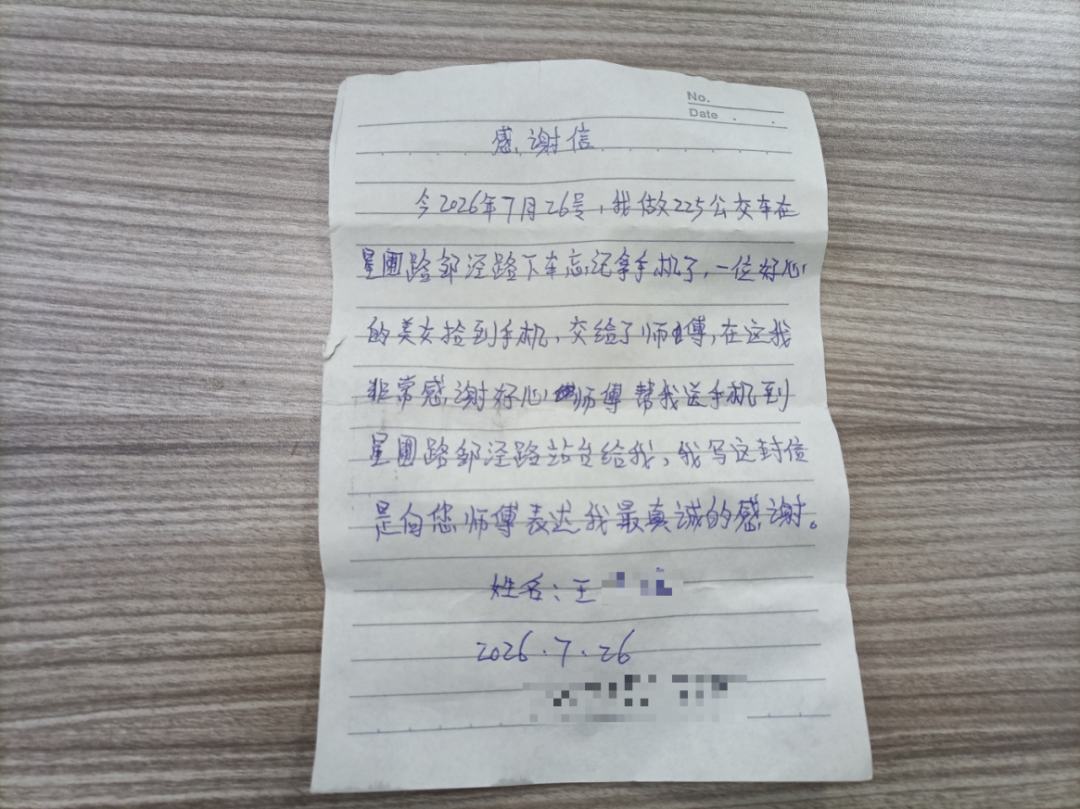 No.
Date . .
感谢信
今2026年7月26号，我做225公交车在
星圃路邹泾路下车忘记拿手机了，一位好心
的美女捡到手机，交给了师傅，在这我
非常感谢好心 师傅帮我送手机到
星圃路邹泾路站台给我，我写这封信
是向您师傅表达我最真诚的感谢。
姓名：王
2026.7.26